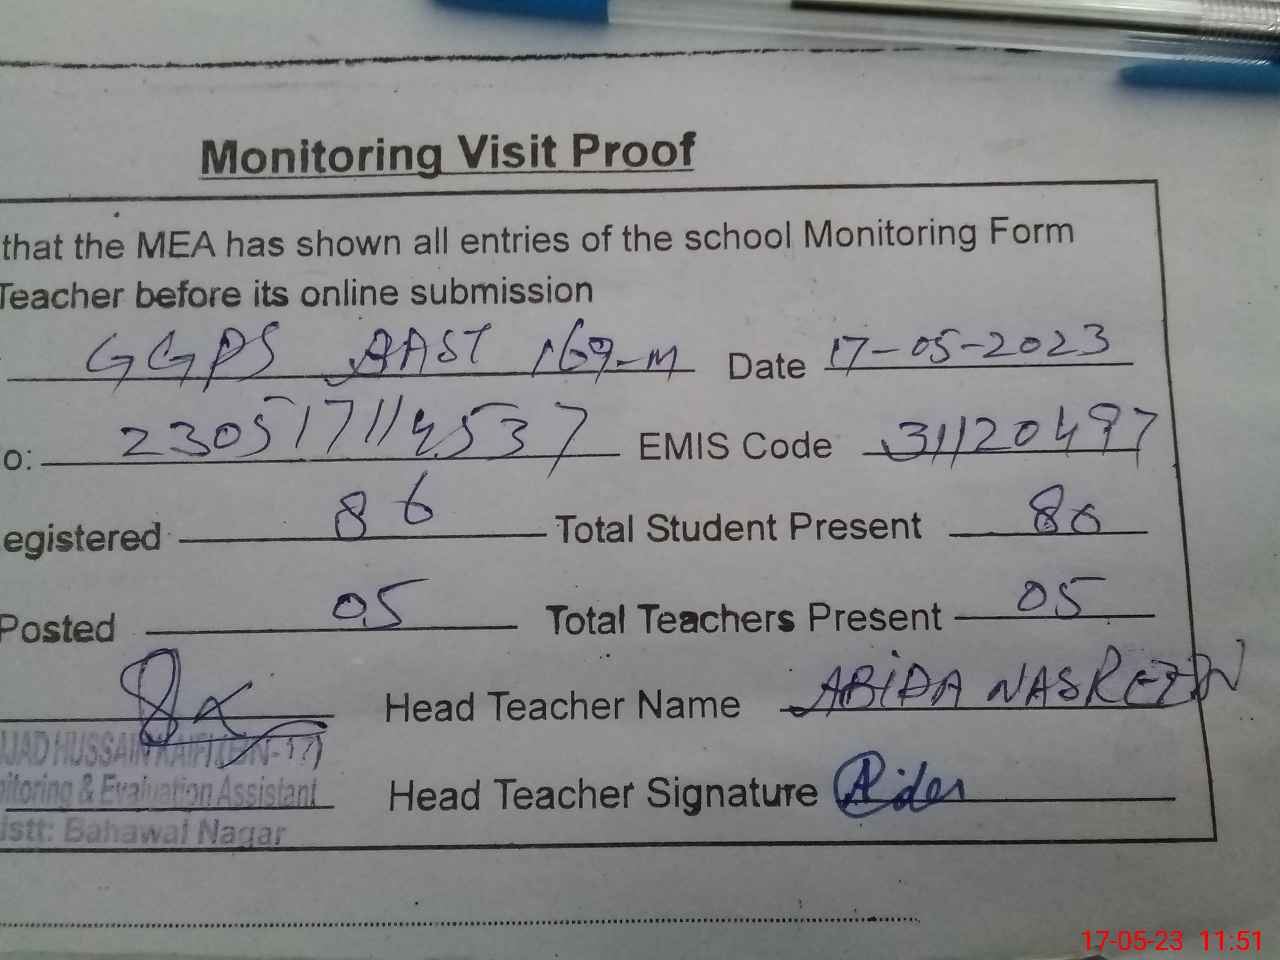 Monitoring Visit Proof
that the MEA has shown all entries of the school Monitoring Form
Teacher before its online submission
GGPS 169-M Date 17-05-2023
o: 2305171114537 EMIS Code 31120497
egistered 86 Total Student Present 80
Posted 05 Total Teachers Present 05
Head Teacher Name ABIDA NASREEN
JJAD HUSSAIN KAIFI -17)
nitoring & Evaluation Assistant Head Teacher Signature
istt: Bahawal Nagar
17-05-23 11:51